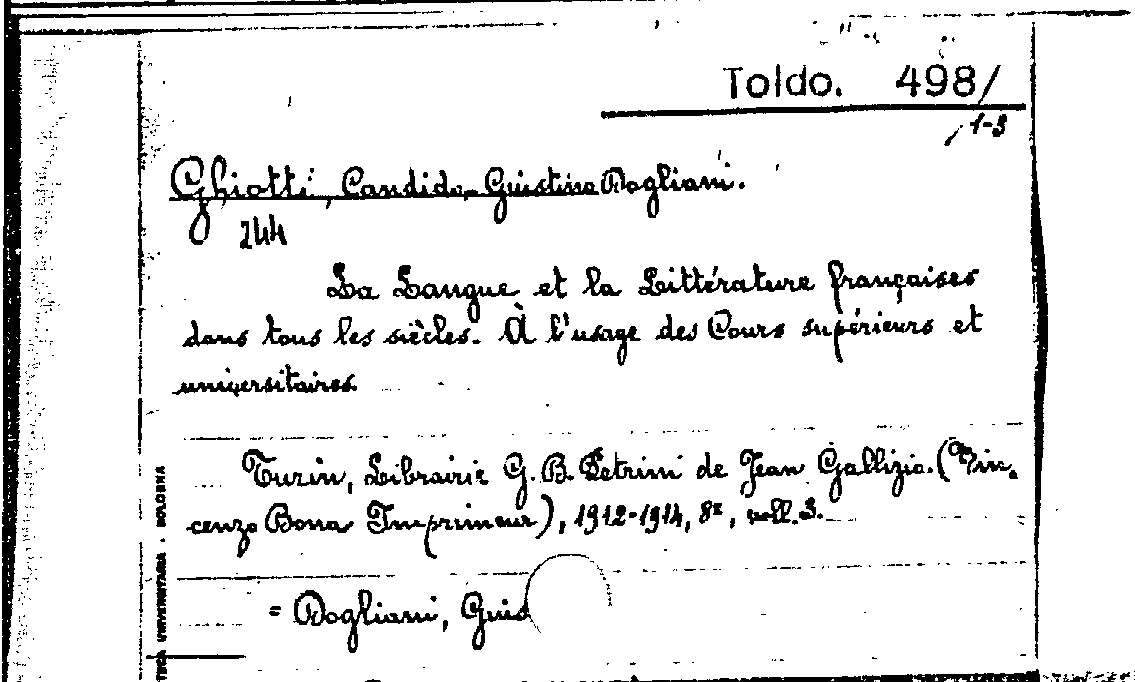 Toldo. 498/
1-3
Ghiotti, Candido, Giustina Dogliani.
244
La Langue et la Littérature françaises
dans tous les siècles. À l'usage des Cours supérieurs et
universitaires.
Turin, Librairie G. B. Petrini de Jean Gallizio. (Vin-
cenzo Bona Imprimeur), 1912-1914, 8º, voll. 3.
= Dogliani, Gius
TECA UNIVERSITARIA - BOLOGNA